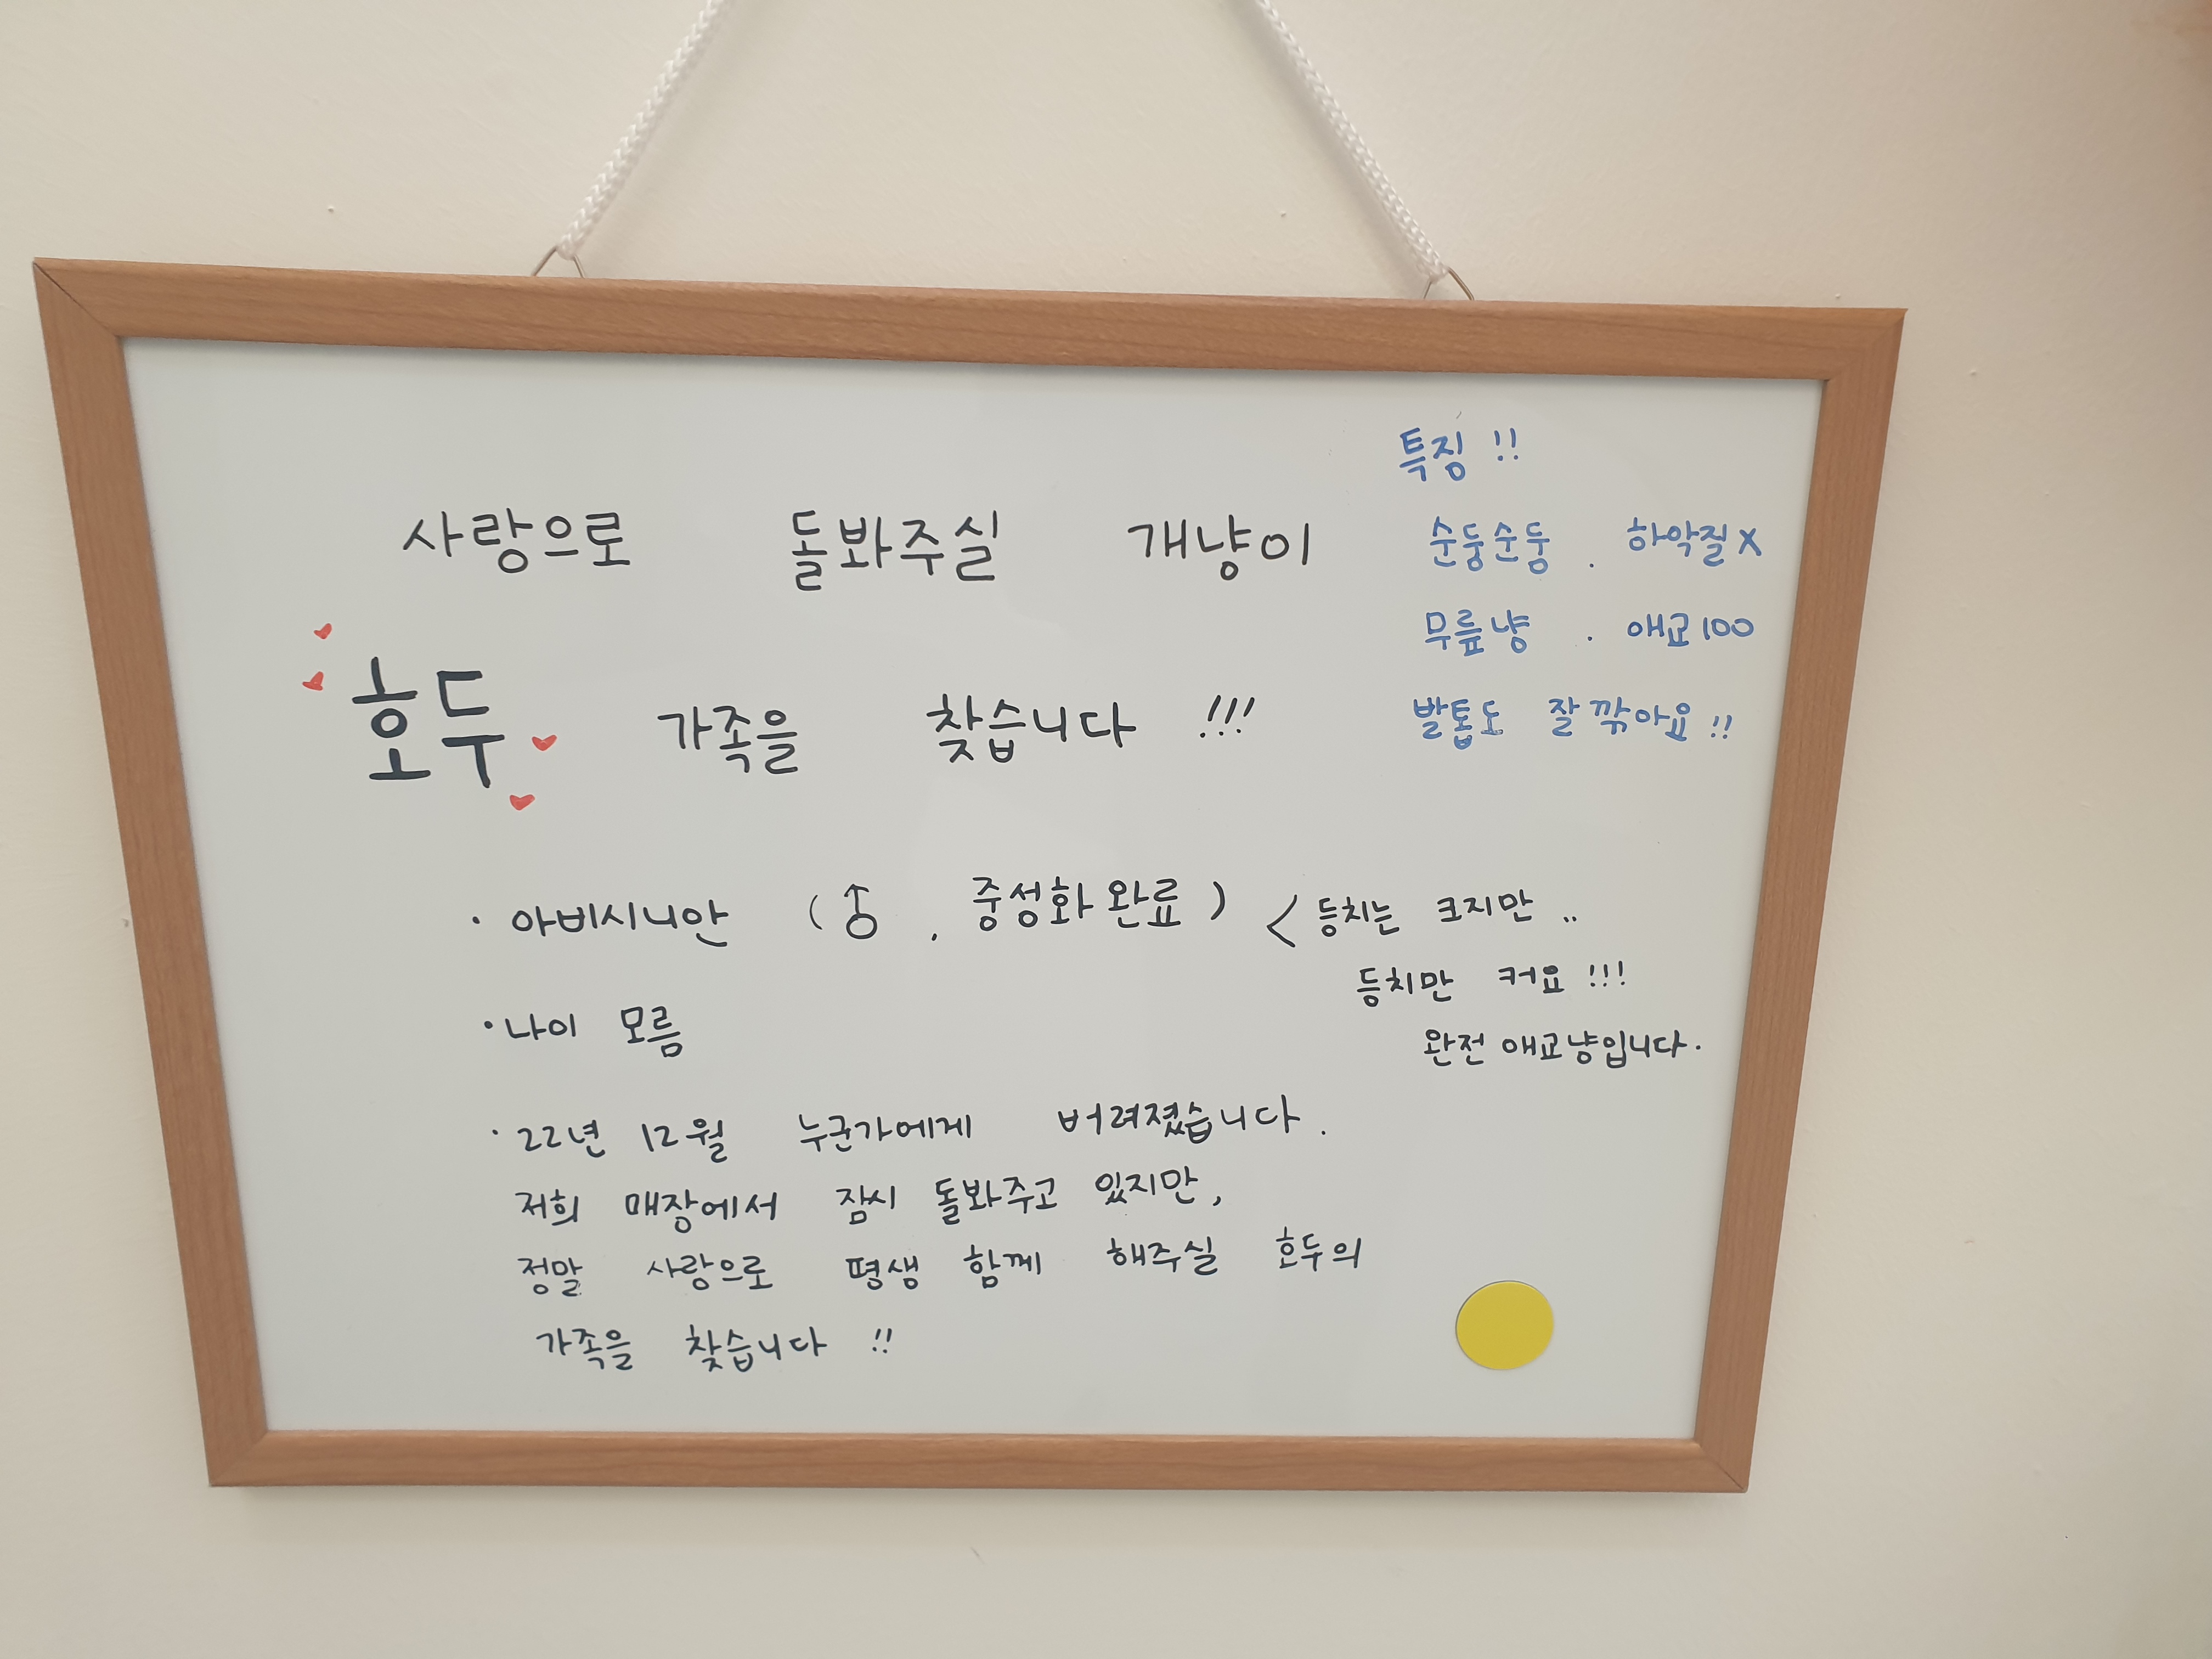 사랑으로 돌봐주실 개냥이
호두 가족을 찾습니다 !!!
특징 !!
순둥순둥 . 하악질X
무릎냥 . 애교100
발톱도 잘깎아요 !!
· 아비시니안 (♂ , 중성화완료) < 등치는 크지만 ..
등치만 커요 !!!
완전 애교냥입니다.
· 나이 모름
· 22년 12월 누군가에게 버려졌습니다.
저희 매장에서 잠시 돌봐주고 있지만,
정말 사랑으로 평생 함께 해주실 호두의
가족을 찾습니다 !!